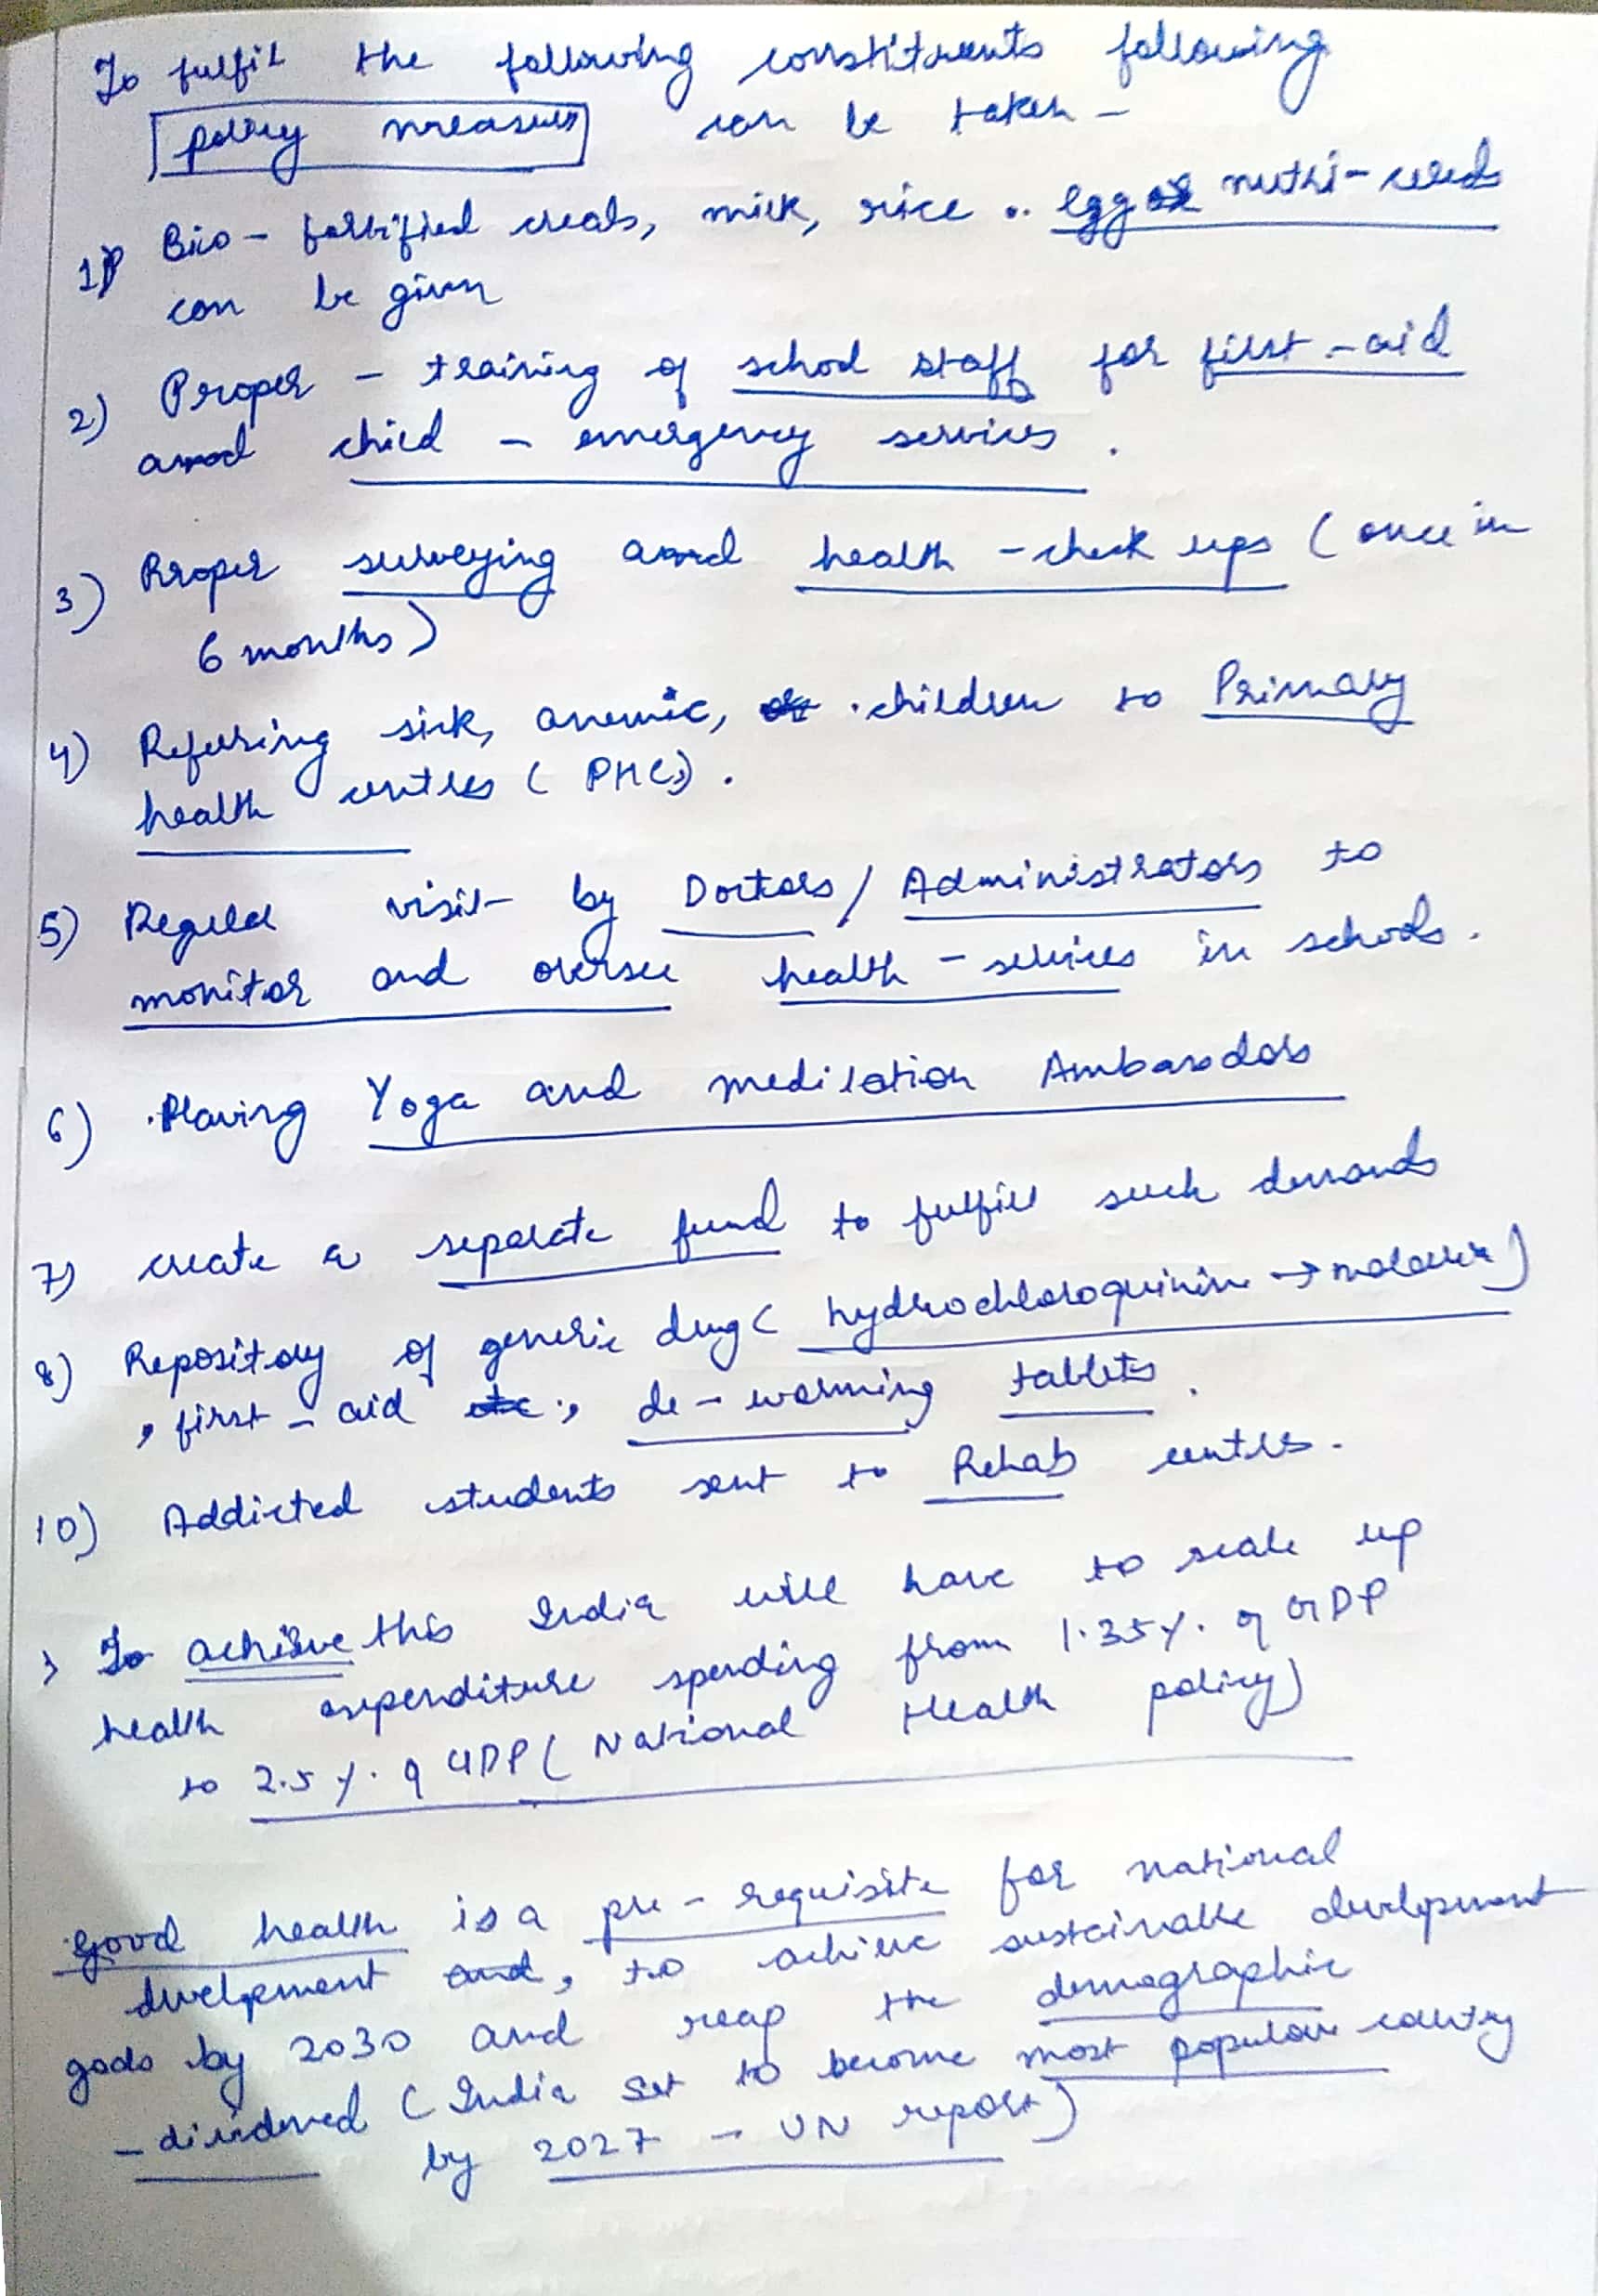 To fulfil the following constituents following
policy measures can be taken -
1) Bio - fortified creals, milk, rice .. egg nutri-cereals
can be given
2) Proper - training of school staff for first - aid
and child - emergency services .
3) Proper surveying and health - check ups ( once in
6 months )
4) Referring sick, anemic, . children to Primary
health centres ( PHCs ) .
5) Regular visit by Doctors / Administrators to
monitor and oversee health - services in schools .
6) . Having Yoga and meditation Ambassdors
7) create a separate fund to fulfill such demands
8) Repository of generic drug ( hydrochloroquinine → malaria )
, first - aid etc ., de - worming tablets .
10) Addicted students sent to Rehab centres .
To achieve this India will have to scale up
health expenditure spending from 1.35 % of GDP
to 2.5 % of GDP ( National Health policy )
Good health is a pre - requisite for national
development and , to achieve sustainable development
goals by 2030 and reap the demographic
- dividened ( India set to become most popular country
by 2027 - UN report )